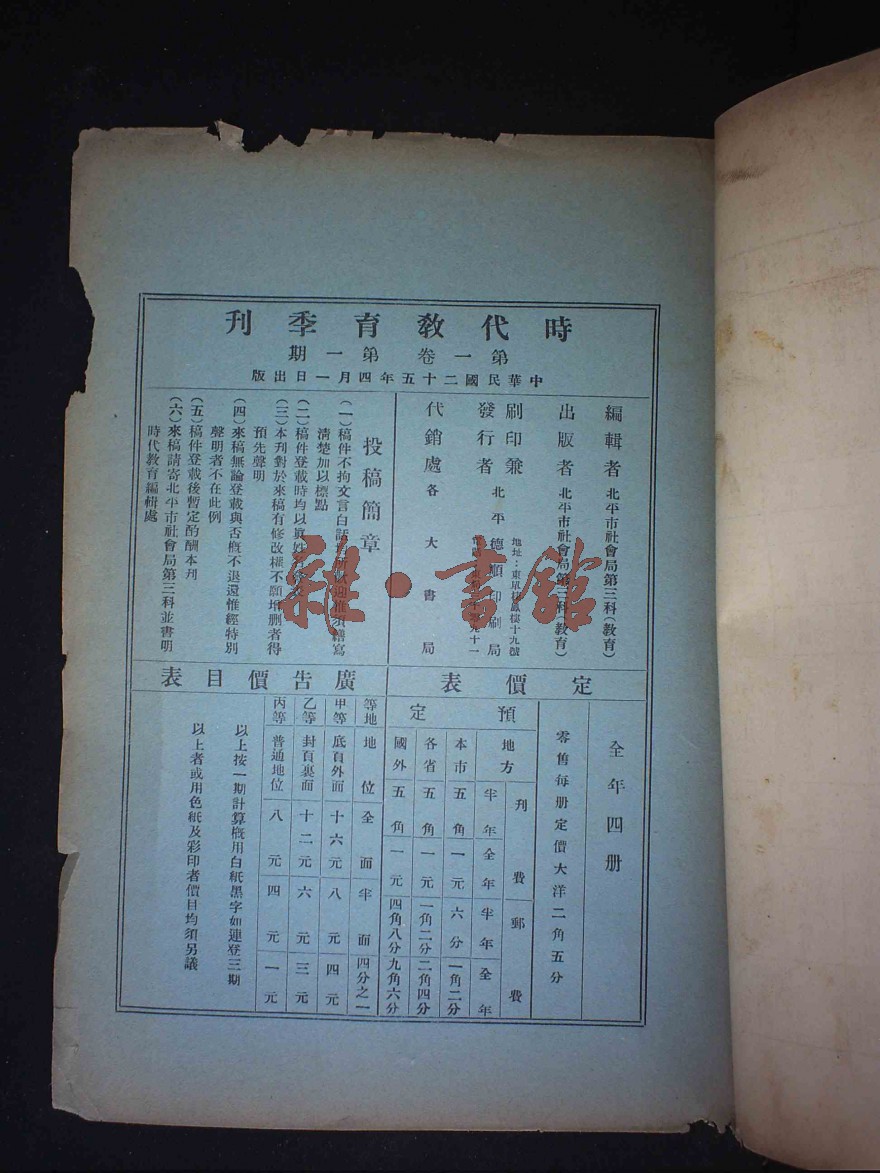 時代教育季刊
第一卷 第一期
中華民國二十五年四月一日出版
編輯者 北平市社會局第三科(教育)
出版者 北平市社會局第三科(教育)
印刷兼發行者 北平德順印刷局
地址:東單棲鳳樓十九號
代銷處 各大書局
投稿簡章
(一)稿件不拘文言白話均所歡迎惟須繕寫
清楚加以標點
(二)稿件登載時均以眞姓
(三)本刊對於來稿有修改權不願增删者得
預先聲明
(四)來稿無論登載與否槪不退還惟經特別
聲明者不在此例
(五)稿件登載後暫定酌酬本刊
(六)來稿請寄北平市社會局第三科並書明
時代教育編輯處
定價表
全年四册
零售每册定價大洋二角五分
預定
地方 刊費 郵費
半年 全年 半年 全年
本市 五角 一元 六分 一角二分
各省 五角 一元 一角二分 二角四分
國外 五角 一元 四角八分 九角六分
廣告價目表
等地 地位 全面 半面 四分之一
甲等 底頁外面 十六元 八元 四元
乙等 封頁裏面 十二元 六元 三元
丙等 普通地位 八元 四元 一元
以上按一期計算概用白紙黑字如連登三期
以上者或用色紙及彩印者價目均須另議
雜·書館